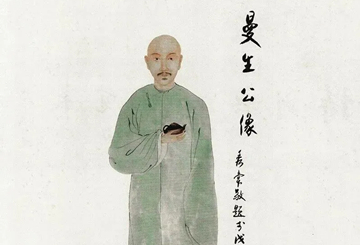 曼生公像
秀棠敬题于戊